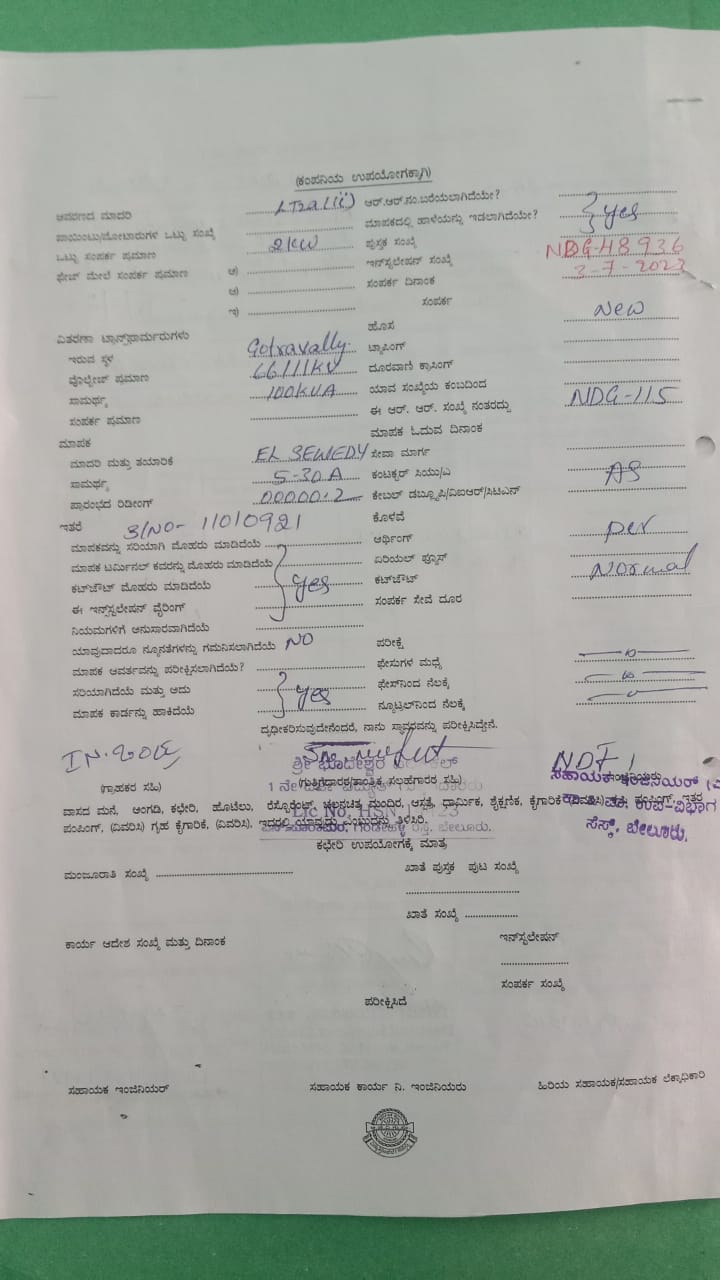 (ಕಂಪನಿಯ ಉಪಯೋಗಕ್ಕಾಗಿ)
ಆವರಣದ ಮಾದರಿ LT2a(ii) ಆರ್.ಆರ್.ನಂ.ಬರೆಯಲಾಗಿದೆಯೇ?
ಪಾಯಿಂಟು/ಮೋಟಾರುಗಳ ಒಟ್ಟು ಸಂಖ್ಯೆ ಮಾಪಕದಲ್ಲಿ ಹಾಳೆಯನ್ನು ಇಡಲಾಗಿದೆಯೇ? yes
ಒಟ್ಟು ಸಂಪರ್ಕ ಪ್ರಮಾಣ 2KW ಪುಸ್ತಕ ಸಂಖ್ಯೆ
ಫೇಜ್ ಮೇಲೆ ಸಂಪರ್ಕ ಪ್ರಮಾಣ ಅ) ಇನ್‌ಸ್ಟಲೇಷನ್ ಸಂಖ್ಯೆ NDG-48936
ಆ) ಸಂಪರ್ಕ ದಿನಾಂಕ 3-7-2023
ಇ) ಸಂಪರ್ಕ
ವಿತರಣಾ ಟ್ರಾನ್ಸ್‌ಫಾರ್ಮರುಗಳು ಹೊಸ New
ಇರುವ ಸ್ಥಳ Gotravally ಟ್ಯಾಪಿಂಗ್
ವೊಲ್ಟೇಜ್ ಪ್ರಮಾಣ 66/11KV ದೂರವಾಣಿ ಕ್ರಾಸಿಂಗ್
ಸಾಮರ್ಥ್ಯ 100KVA ಯಾವ ಸಂಖ್ಯೆಯ ಕಂಬದಿಂದ
ಸಂಪರ್ಕ ಪ್ರಮಾಣ ಈ ಆರ್. ಆರ್. ಸಂಖ್ಯೆ ನಂತರದ್ದು NDG-115
ಮಾಪಕ ಮಾಪಕ ಓದುವ ದಿನಾಂಕ
ಮಾದರಿ ಮತ್ತು ತಯಾರಿಕೆ EL SEWEDY ಸೇವಾ ಮಾರ್ಗ
ಸಾಮರ್ಥ್ಯ 5-30A ಕಂಟಕ್ಟರ್ ಸಿಯು/ಎ As
ಪ್ರಾರಂಭದ ರಿಡೀಂಗ್ 000001.2 ಕೇಬಲ್ ಡಬ್ಲ್ಯೂಪಿ/ವಿಐಆರ್/ಸಿಟಿಎಸ್
ಇತರೆ S/NO- 11010921 ಕೊಳವೆ
ಮಾಪಕವನ್ನು ಸರಿಯಾಗಿ ಮೊಹರು ಮಾಡಿದೆಯೆ ಅರ್ಥಿಂಗ್ per
ಮಾಪಕ ಟರ್ಮಿನಲ್ ಕವರನ್ನು ಮೊಹರು ಮಾಡಿದೆಯೆ ಏರಿಯಲ್ ಫ್ಯೂಸ್
ಕಟ್‌ಔಟ್ ಮೊಹರು ಮಾಡಿದೆಯೆ yes ಕಟ್‌ಔಟ್ Normal
ಈ ಇನ್ಸ್‌ಸ್ಟಲೇಷನ್ ವೈರಿಂಗ್ ಸಂಪರ್ಕ ಸೇವೆ ದೂರ
ನಿಯಮಗಳಿಗೆ ಅನುಸಾರವಾಗಿದೆಯೆ
ಯಾವುದಾದರೂ ನ್ಯೂನತೆಗಳನ್ನು ಗಮನಿಸಲಾಗಿದೆಯೆ NO ಪರೀಕ್ಷೆ
ಮಾಪಕ ಆವರ್ತವನ್ನು ಪರೀಕ್ಷಿಸಲಾಗಿದೆಯೆ? ಫೇಸುಗಳ ಮಧ್ಯೆ
ಸರಿಯಾಗಿದೆಯೆ ಮತ್ತು ಅದು yes ಫೇಸ್‌ನಿಂದ ನೆಲಕ್ಕೆ
ಮಾಪಕ ಕಾರ್ಡನ್ನು ಹಾಕಿದೆಯೆ ನ್ಯೂಟ್ರಲ್‌ನಿಂದ ನೆಲಕ್ಕೆ
ದೃಢೀಕರಿಸುವುದೇನೆಂದರೆ, ನಾನು ಸ್ಥಾವರವನ್ನು ಪರೀಕ್ಷಿಸಿದ್ದೇನೆ.
(ಗ್ರಾಹಕರ ಸಹಿ) (ಗುತ್ತಿಗೆದಾರರ/ತಾಂತ್ರಿಕ ಸಲಹಗಾರರ ಸಹಿ) ಸಹಾಯಕ ಇಂಜಿನಿಯರ್
ವಾಸದ ಮನೆ, ಅಂಗಡಿ, ಕಛೇರಿ, ಹೊಟೆಲು, ರೆಸ್ಟೋರೆಂಟ್, ಚಲನಚಿತ್ರ ಮಂದಿರ, ಆಸ್ಪತ್ರೆ, ಧಾರ್ಮಿಕ, ಶೈಕ್ಷಣಿಕ, ಕೈಗಾರಿಕೆ (ವಿವರಿಸಿ) ಪಂಪಿಂಗ್, ಇತರ
ಪಂಪಿಂಗ್, (ವಿವರಿಸಿ) ಗೃಹ ಕೈಗಾರಿಕೆ, (ವಿವರಿಸಿ), ಇದರಲ್ಲಿ ಯಾವುದು ಎಂಬುದನ್ನು ತಿಳಿಸಿರಿ.
ಸೆಸ್ಕ್, ಬೇಲೂರು.
ಕಛೇರಿ ಉಪಯೋಗಕ್ಕೆ ಮಾತ್ರ
ಮಂಜೂರಾತಿ ಸಂಖ್ಯೆ ಖಾತೆ ಪುಸ್ತಕ ಪುಟ ಸಂಖ್ಯೆ
ಖಾತೆ ಸಂಖ್ಯೆ
ಕಾರ್ಯ ಆದೇಶ ಸಂಖ್ಯೆ ಮತ್ತು ದಿನಾಂಕ ಇನ್‌ಸ್ಟಲೇಷನ್
ಸಂಪರ್ಕ ಸಂಖ್ಯೆ
ಪರೀಕ್ಷಿಸಿದೆ
ಸಹಾಯಕ ಇಂಜಿನಿಯರ್ ಸಹಾಯಕ ಕಾರ್ಯ ನಿ. ಇಂಜಿನಿಯರು ಹಿರಿಯ ಸಹಾಯಕ/ಸಹಾಯಕ ಲೆಕ್ಕಾಧಿಕಾರಿ